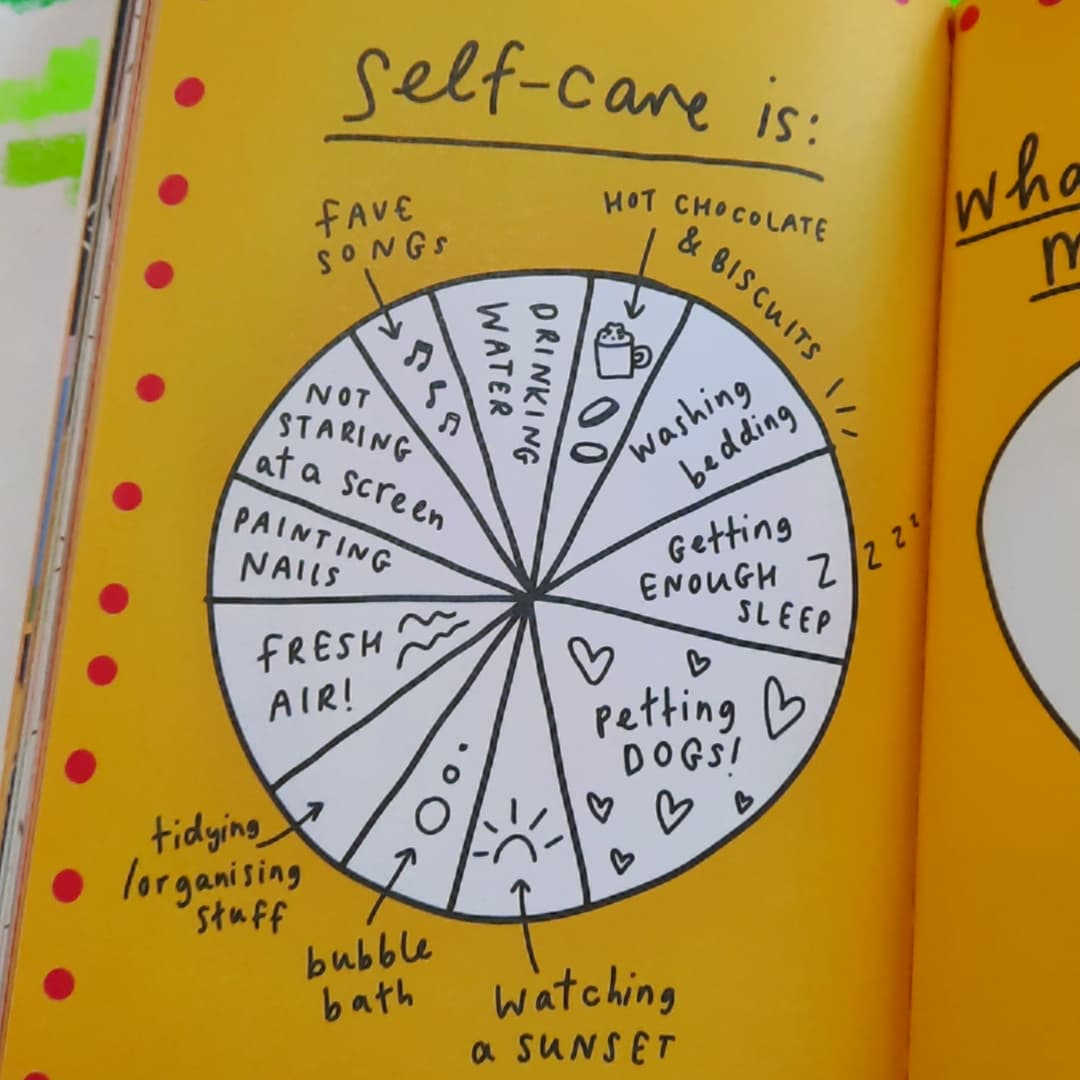 Self-care is:
FAVE
SONGS
HOT CHOCOLATE
& BISCUITS
DRINKING
WATER
washing
bedding
NOT
STARING
at a screen
Getting
ENOUGH
SLEEP
Z z z z
PAINTING
NAIlS
FRESH
AIR!
petting
DOGS!
tidying
/organising
stuff
bubble
bath
watching
a SUNSET